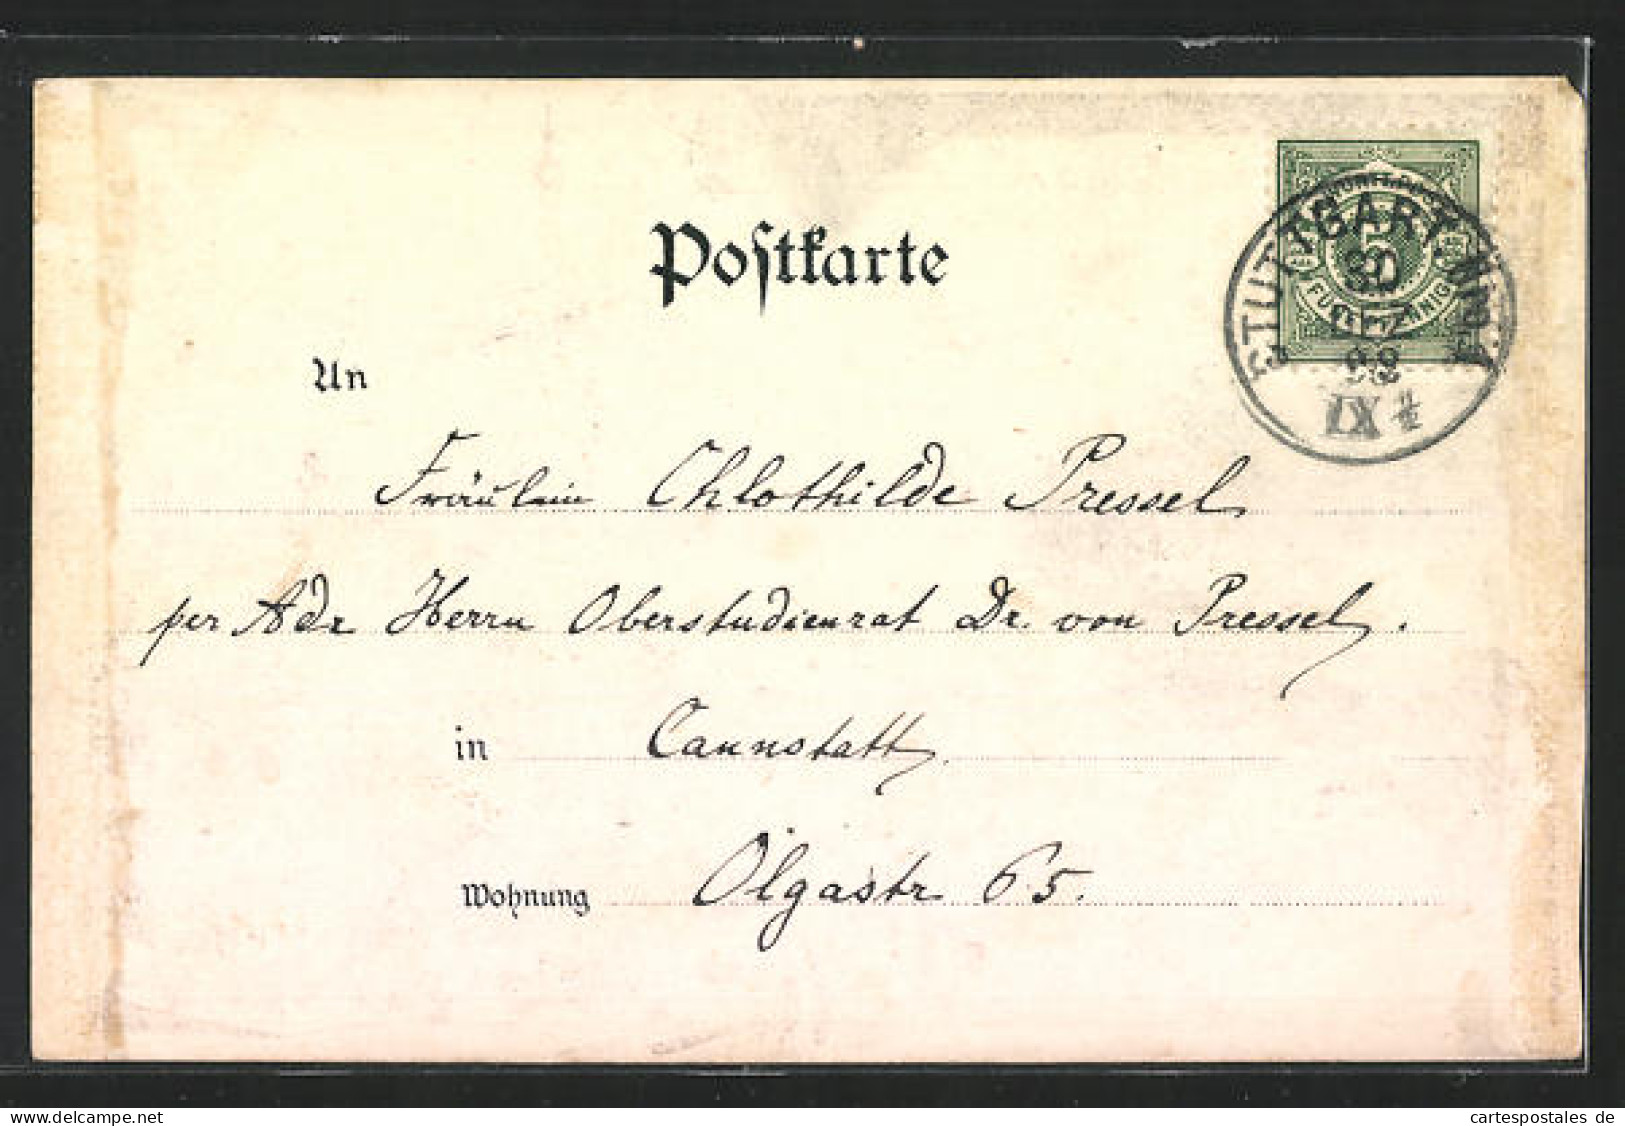 Postkarte
STUTTGART
5
30
DEZ
98
IX ½
An
Fräulein Chlothilde Pressel
per Adr Herrn Oberstudienrat Dr. von Pressel.
in Cannstatt,
Wohnung Olgastr 65.
cartespostales de